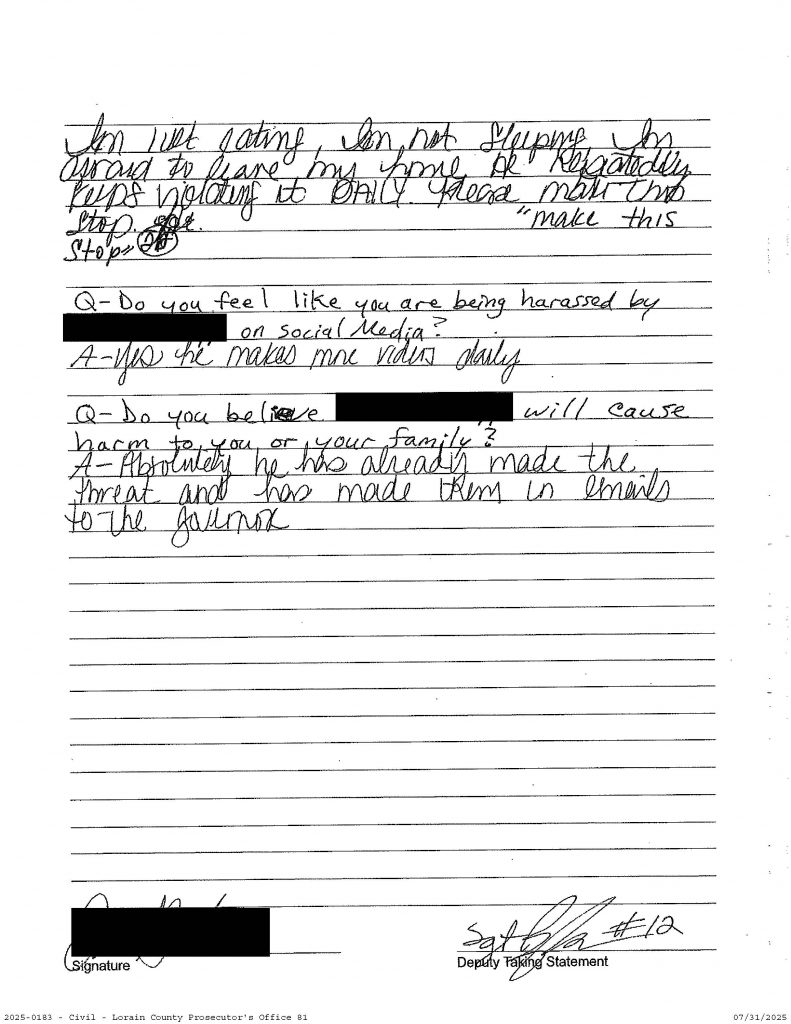 I'm not eating, I'm not sleeping I'm
afraid to leave my home, he Repeatedly
keeps violating it DAILY. Please make this
stop. "make this
stop"
Q-Do you feel like you are being harassed by
on social Media?
A-yes he makes more videos daily
Q-Do you believe will cause
harm to you or your family?
A-Absolutely he has already made the
threat and has made them in emails
to the govenor
Sgt #12
Signature Deputy Taking Statement
2025-0183 - Civil - Lorain County Prosecutor's Office 81 07/31/2025